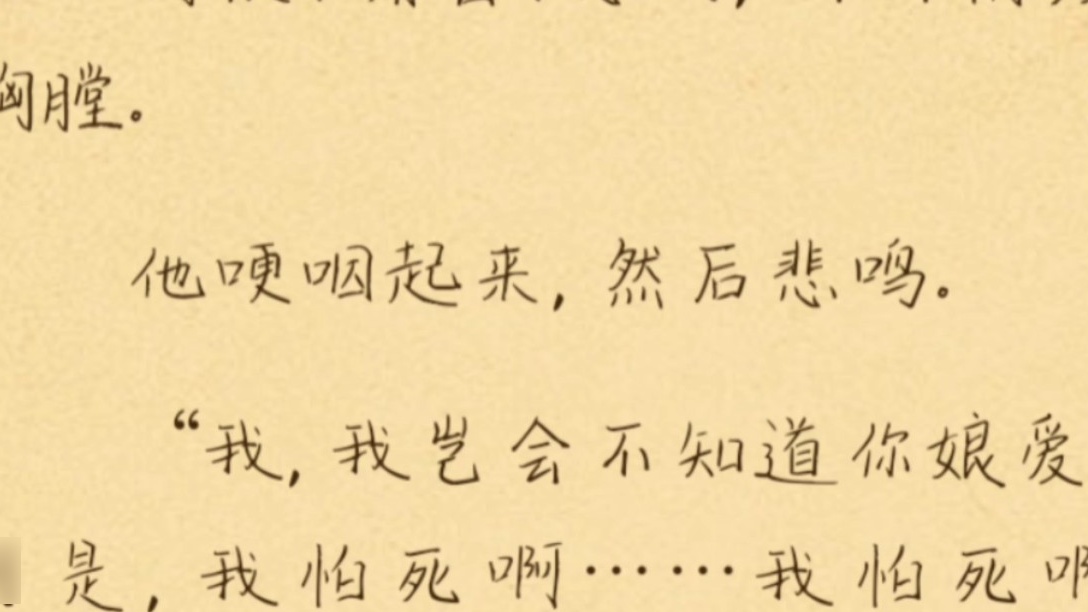 胸膛。
他哽咽起来，然后悲鸣。
“我，我岂会不知道你娘爱
是，我怕死啊……我怕死啊